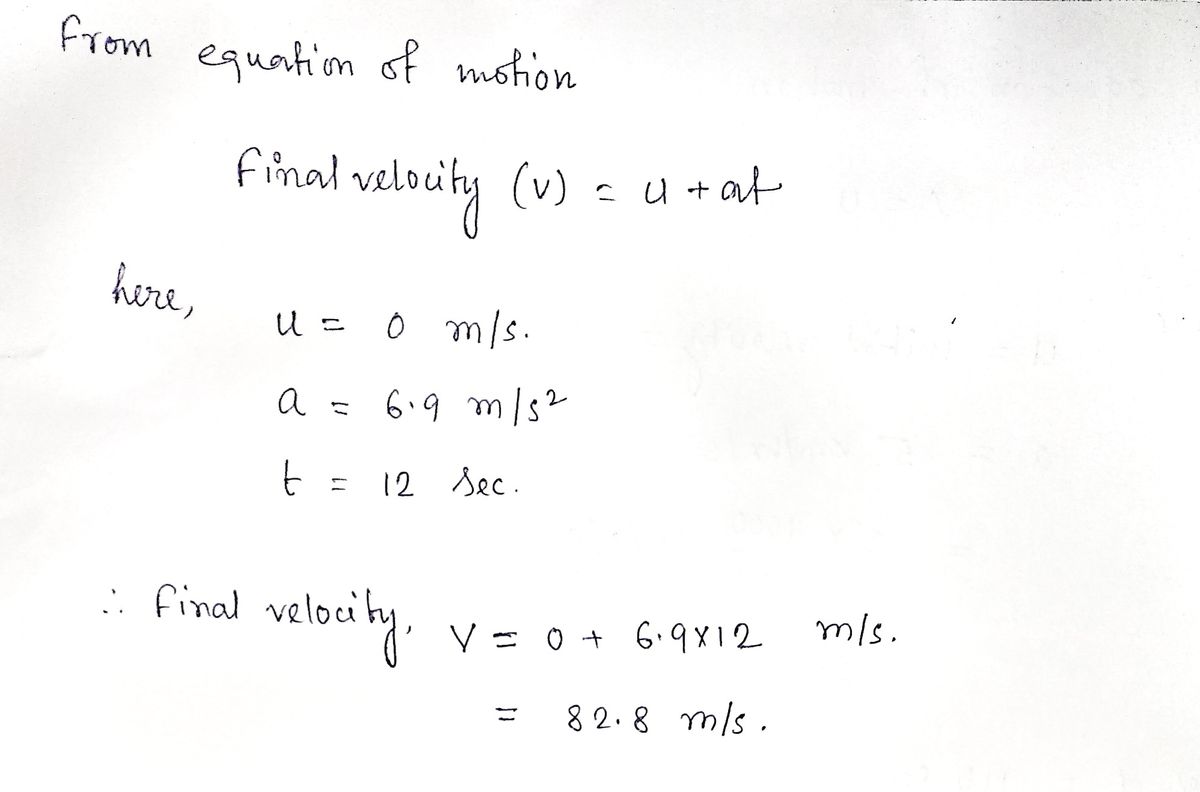 From equation of motion
Final velocity (v) = u + at
here,
u = 0 m/s.
a = 6.9 m/s²
t = 12 sec.
∴ Final velocity, V = 0 + 6.9x12 m/s.
= 82.8 m/s.